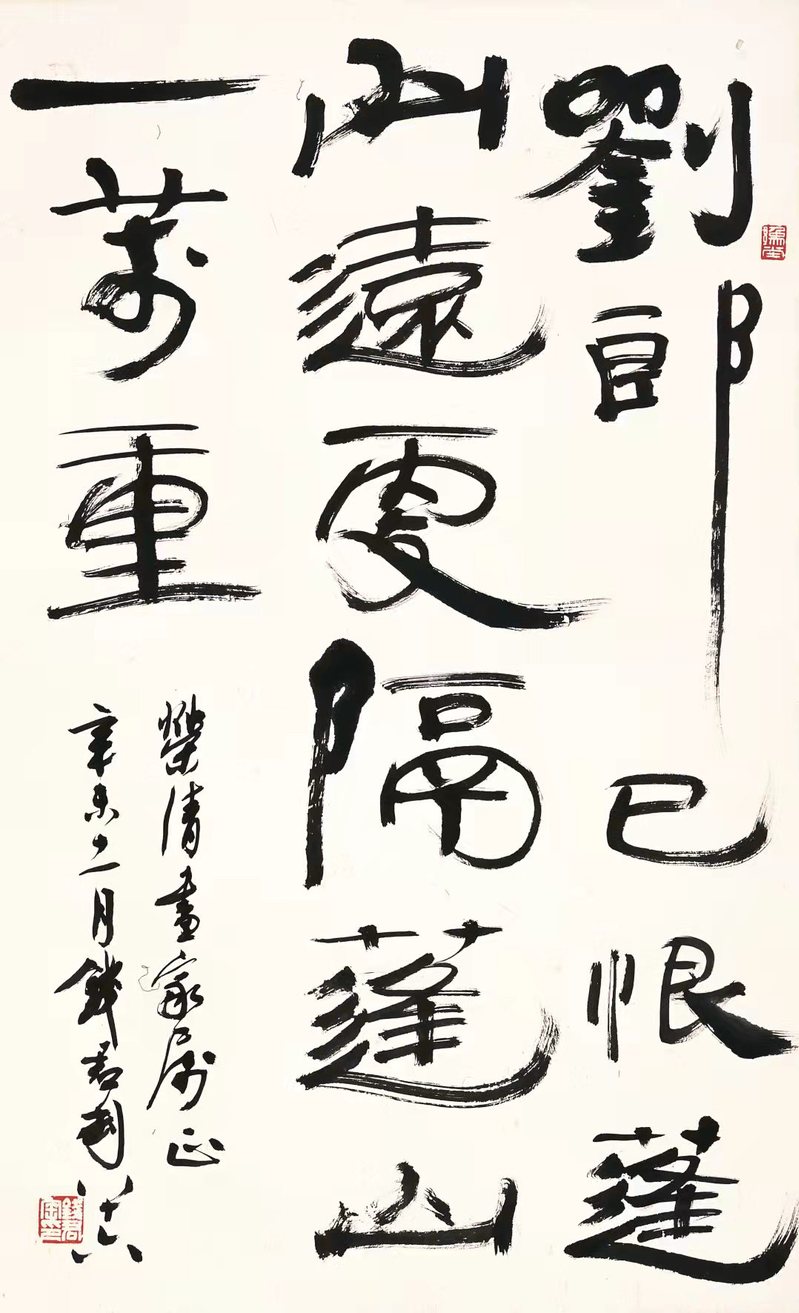 劉郎已恨蓬
山遠更隔蓬山
一萬重
榮清畫家属正
辛未二月錢君匋八十六